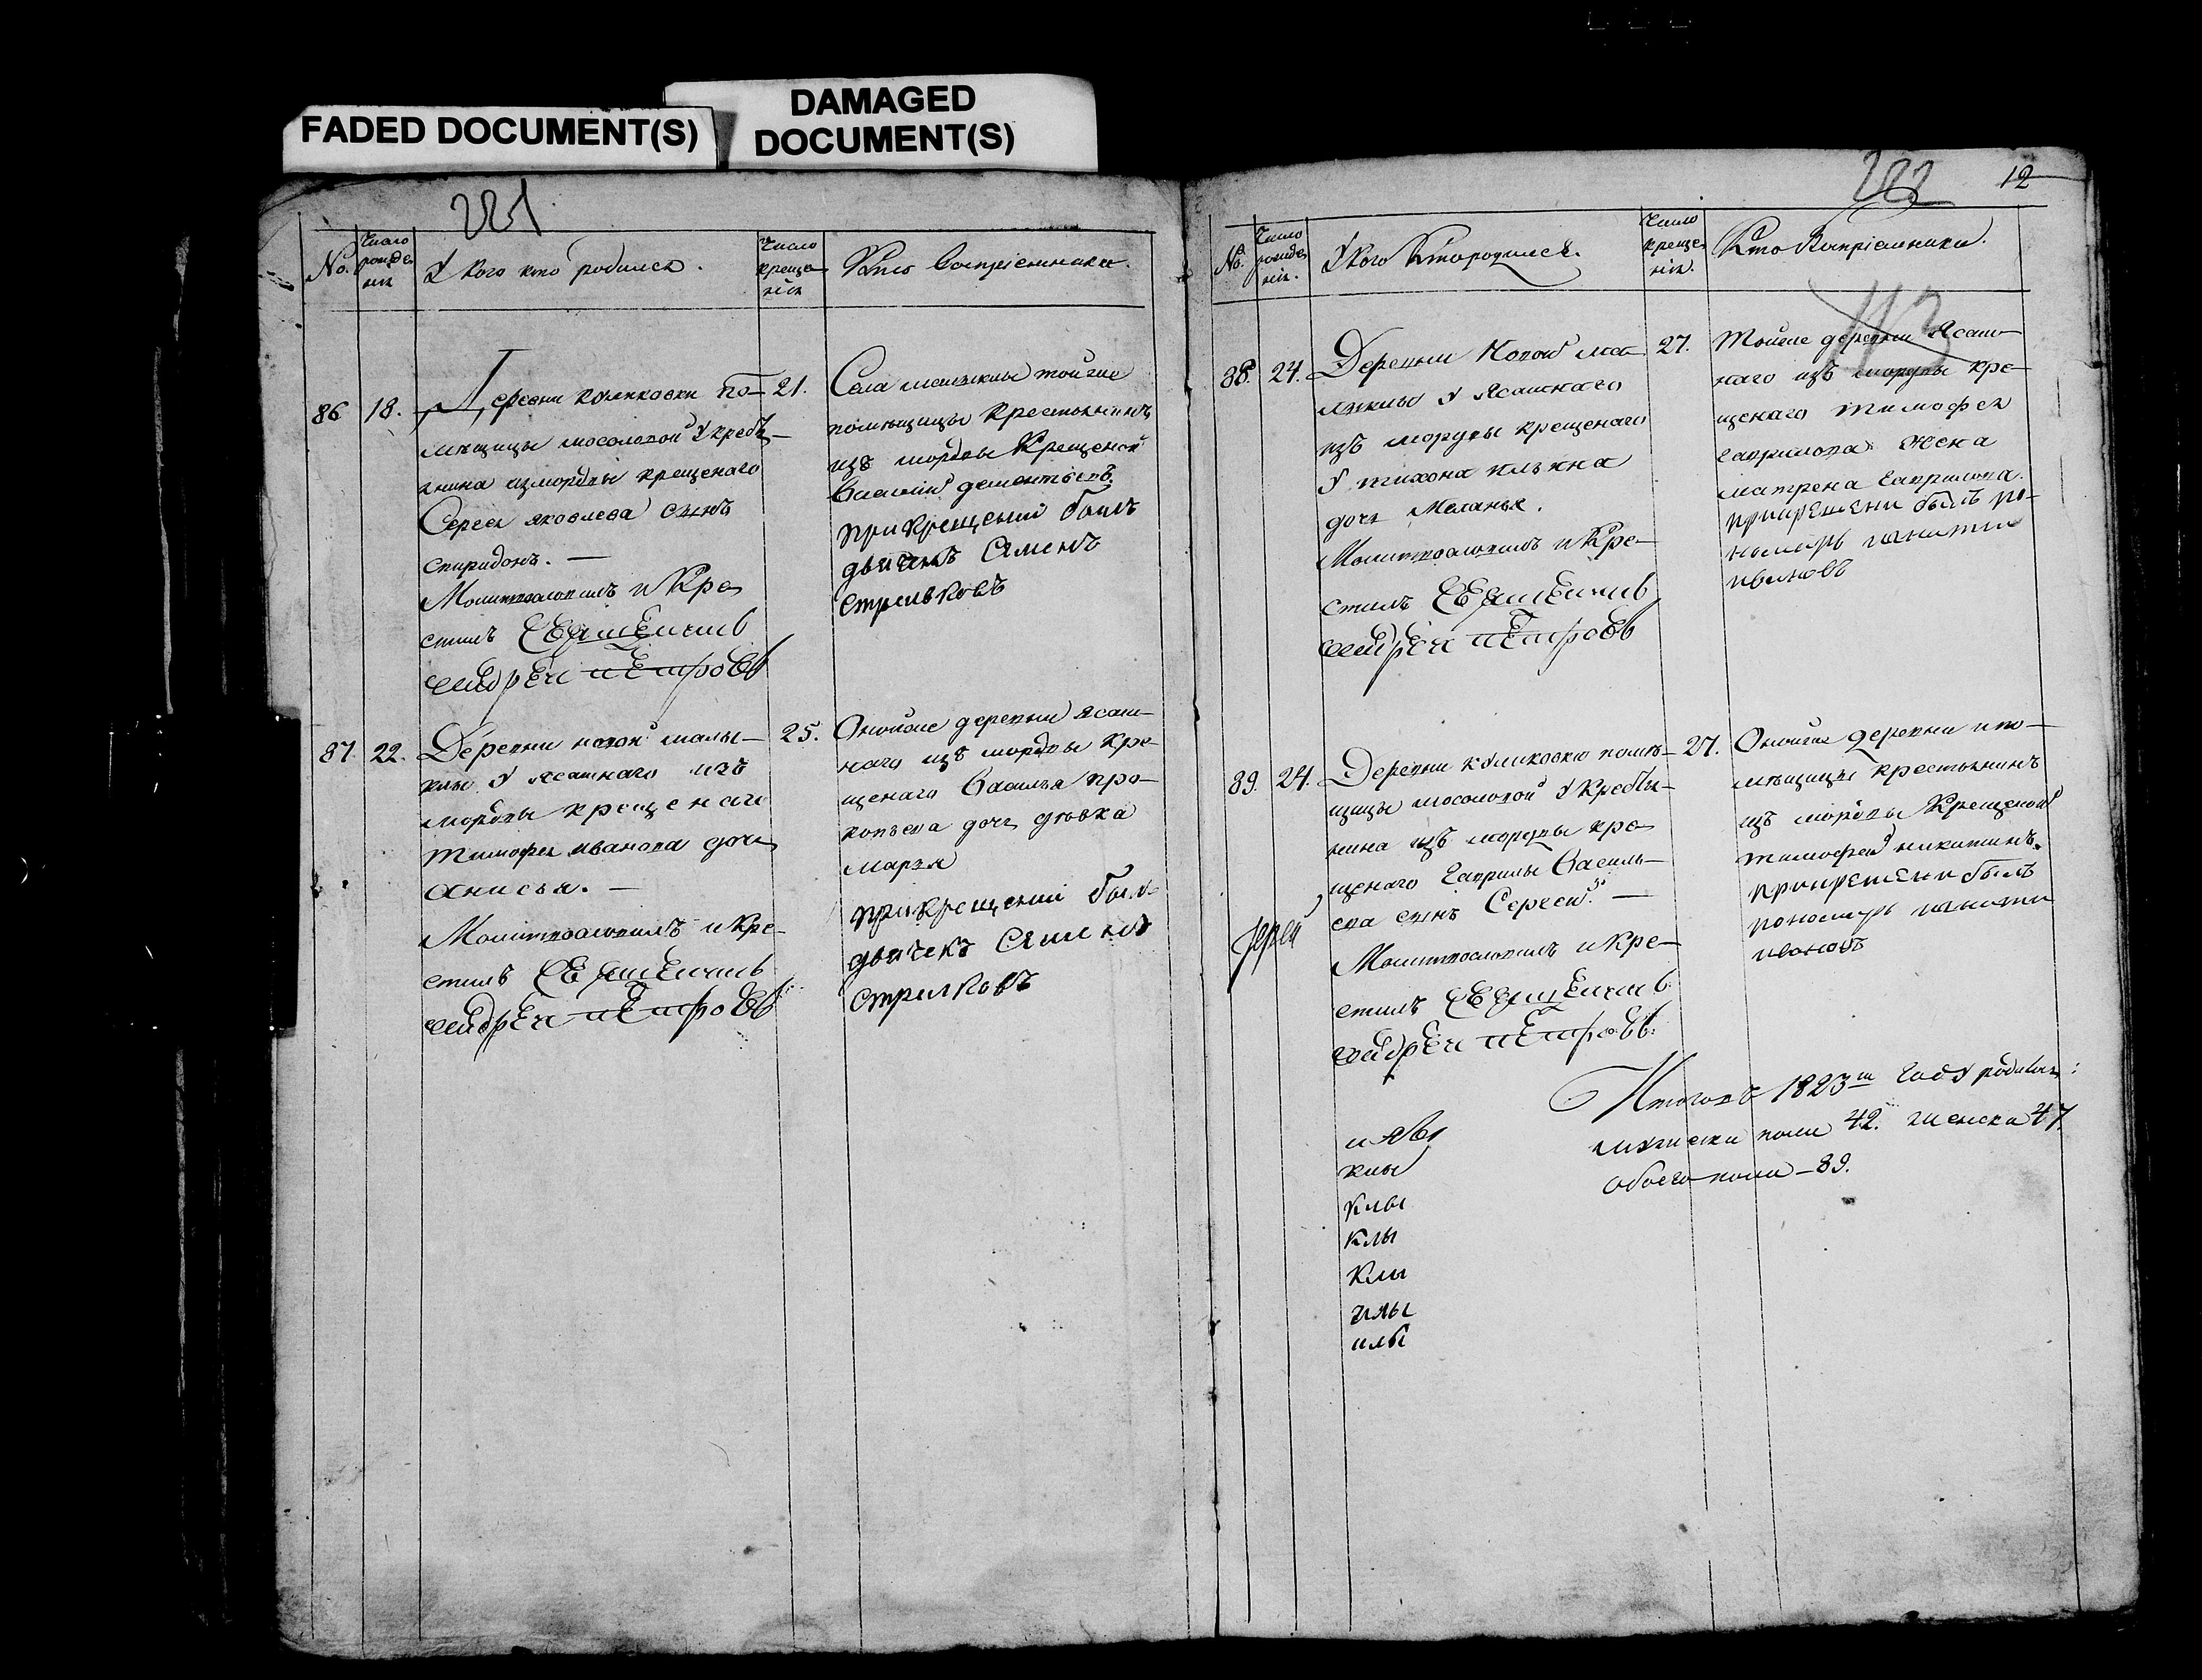 FADED DOCUMENT(S)
DAMAGED
DOCUMENT(S)
221
No.
Число
рожде
нія
У кого кто родился.
Число
креще
нія
Кто воспріемники.
86
18.
Деревни куликовки по-
мѣщицы мосоловой У кресть-
янина измордвы крещенаго
Сергея яковлева сынъ
спиридонъ. —
Молитвовалъ и Кре
стилъ Священникъ
андрей пЕтровъ
21.
Села малыклы тойже
помѣщицы крестьянинъ
изъ мордвы Крещеной
Василий дементьевъ.
при крещении былъ
дьячекъ Сименъ
стрелковъ
87.
22.
Деревни новой малы-
клы У ясашнаго изъ
мордвы крещенаго
тимофея иванова дочь
анисья. —
Молитвовалъ и Кре-
стилъ СвященникЪ
андрей пЕтровъ
25.
Оной же деревни ясаш-
наго изъ мордвы кре-
щенаго Василья про-
копьева дочь девка
марья
при крещении былъ
дьячекъ Сименъ
стрелковъ
222
12
No.
Число
рожде
нія.
У кого Кто родился.
Число
креще
нія.
Кто Воспріемники.
113
88.
24.
Деревни Новой ма-
лыклы У Ясашнаго
изъ мордвы крещенаго
У тихона
дочь Меланья.
Молитвовалъ и Кре-
стилъ СвященникЪ
андрей пЕтровъ
27.
Тойже деревни Ясаш-
наго изъ мордвы кре-
щенаго тимофея
гаврилова жена
матрена гаврилова.
при крещении былъ по-
номарь никити
ивановъ
89.
24.
Деревни куликовки помѣ-
щицы мосоловой У кресть-
янина изъ мордвы кре
щенаго гаврилы Василь-
ева сынъ Сергей. —
Молитвословилъ и кре-
стилъ СвященникЪ
андрей пЕтровъ.
27.
Оной же деревни и по-
мѣщицы крестьянинъ
изъ мордвы Крещеной
тимофей никитинъ.
при крещении былъ
пономарь никити
ивановъ
Итого въ 1823м годУ родилось:
мужеска пола 42. женска 47.
обоего пола — 89.
клы
клы
клы
клы